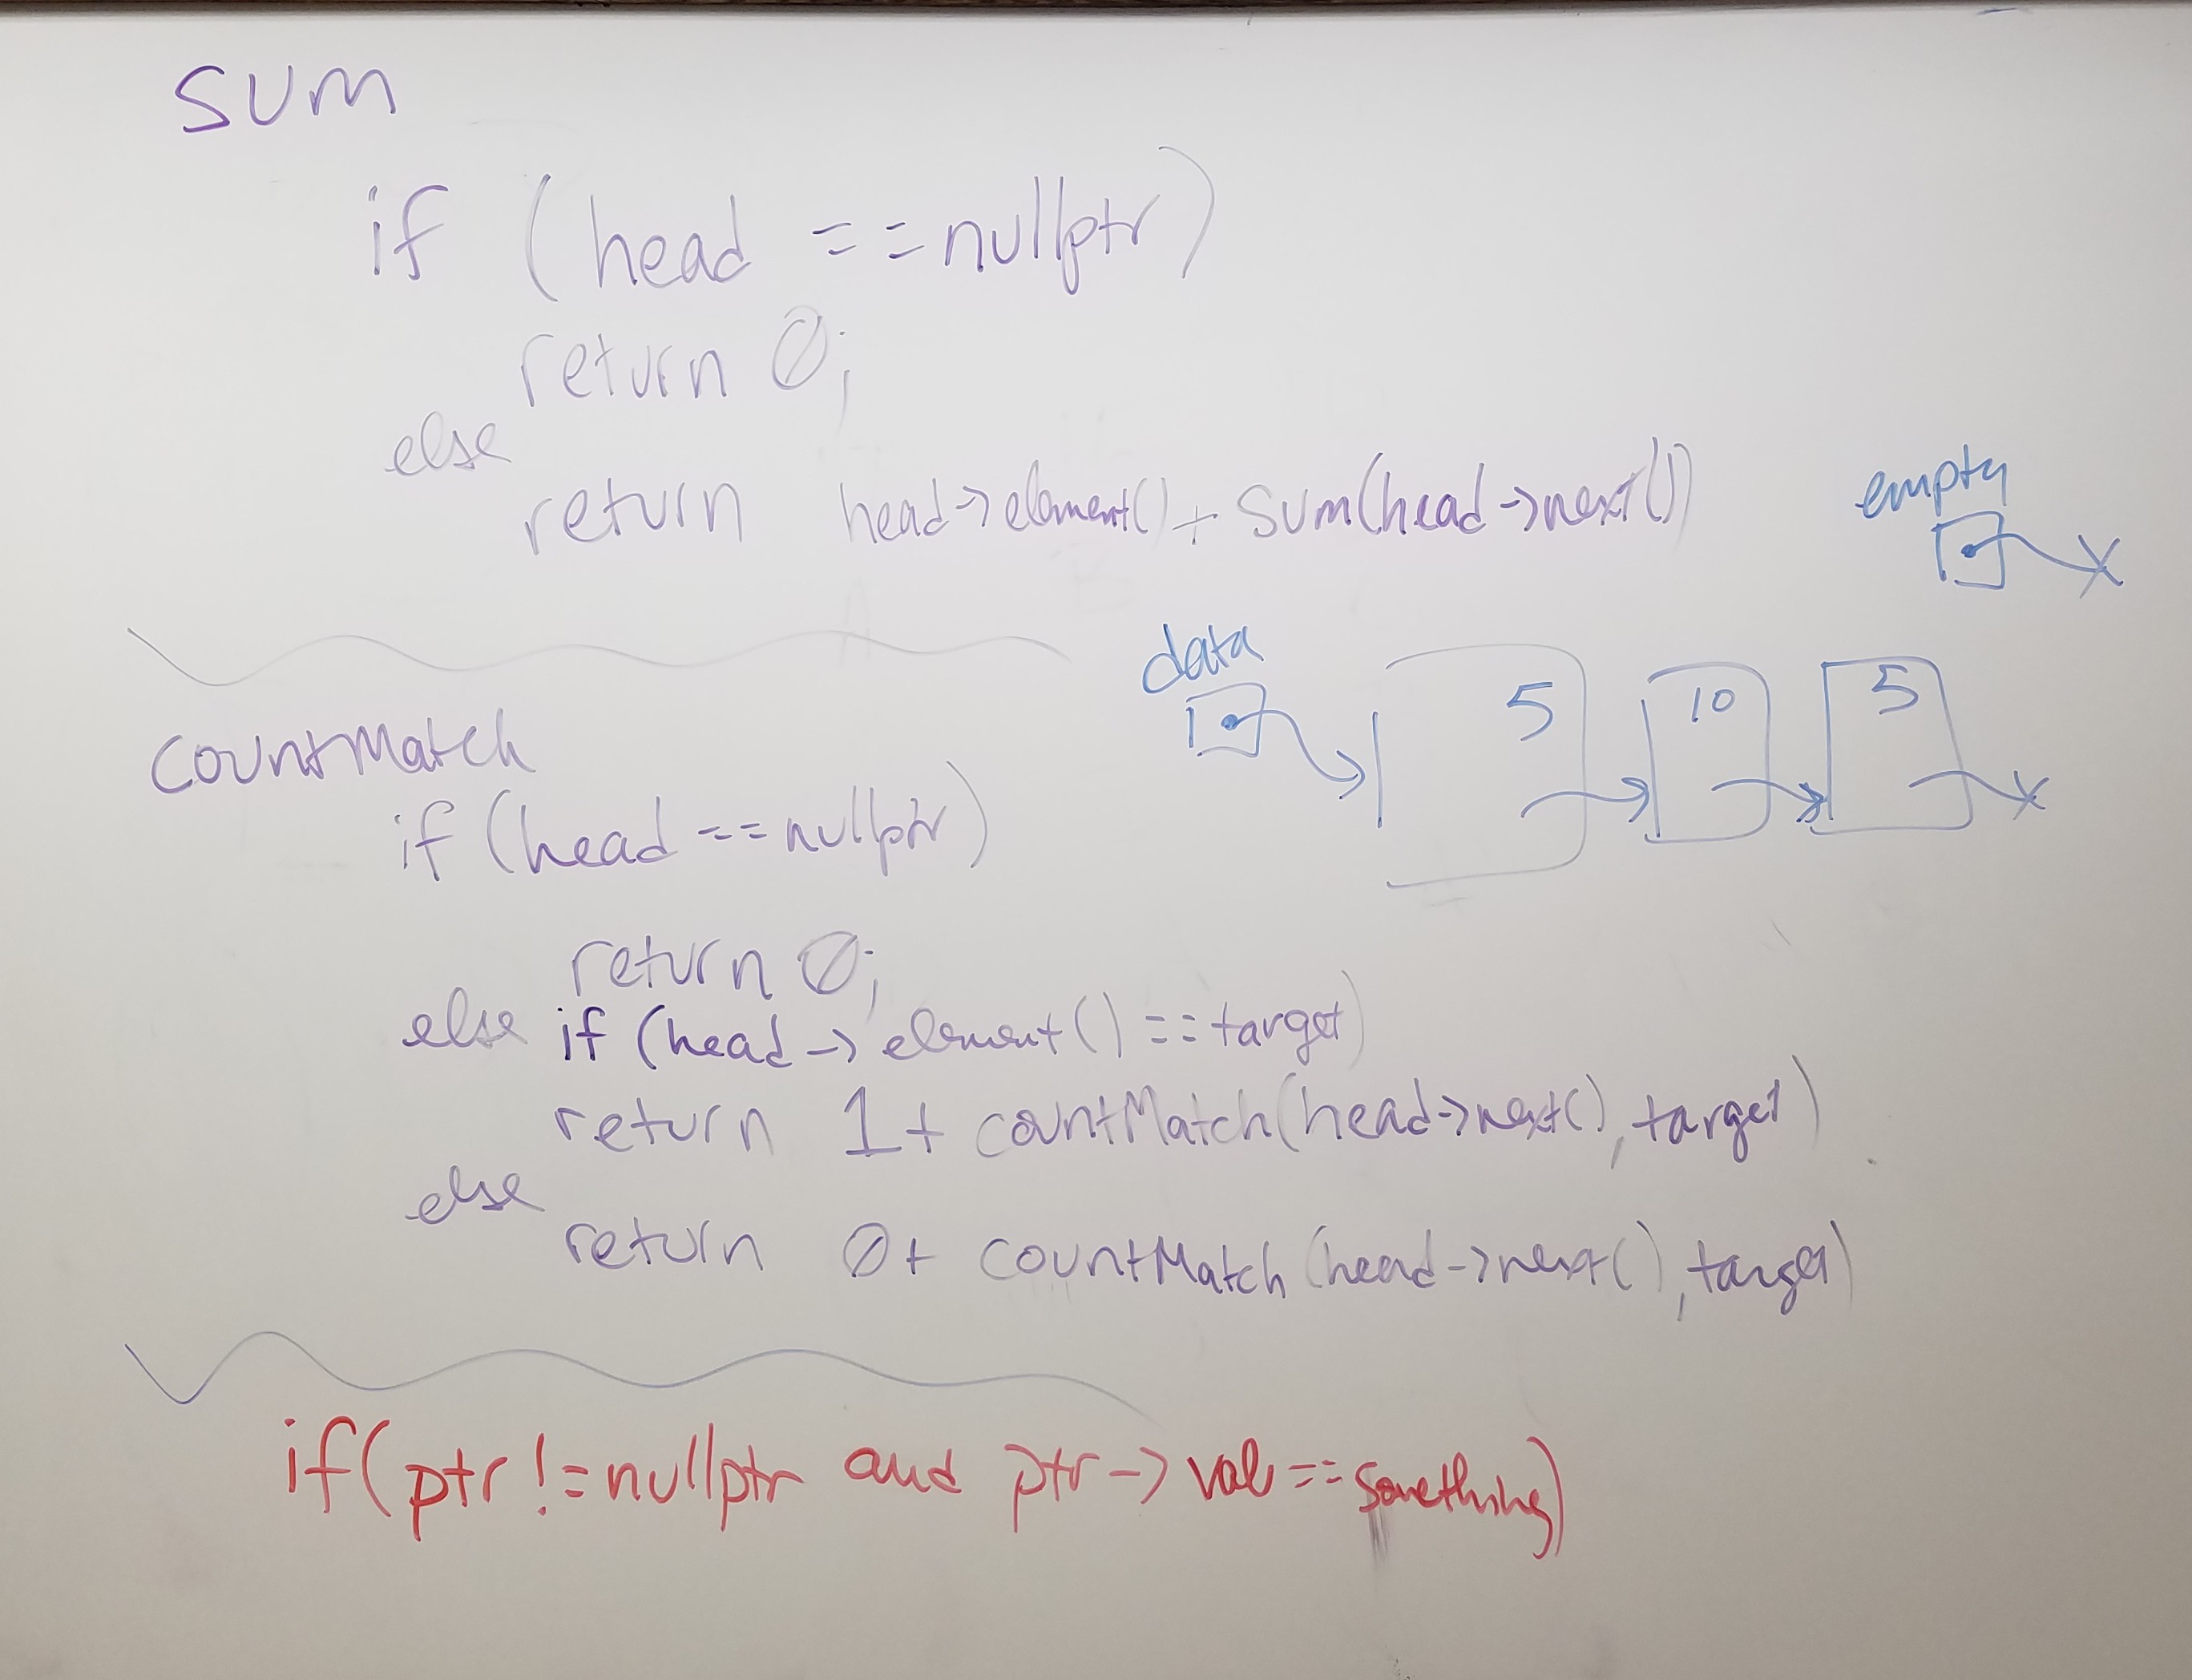 sum
if (head == nullptr)
return 0;
else
return head->element() + sum(head->next())
empty
data
5 10 5
countMatch
if (head == nullptr)
return 0;
else if (head-> element() == target)
return 1+ countMatch(head->next(), target)
else
return 0+ countMatch(head->next(), target)
if(ptr != nullptr and ptr-> val == something)